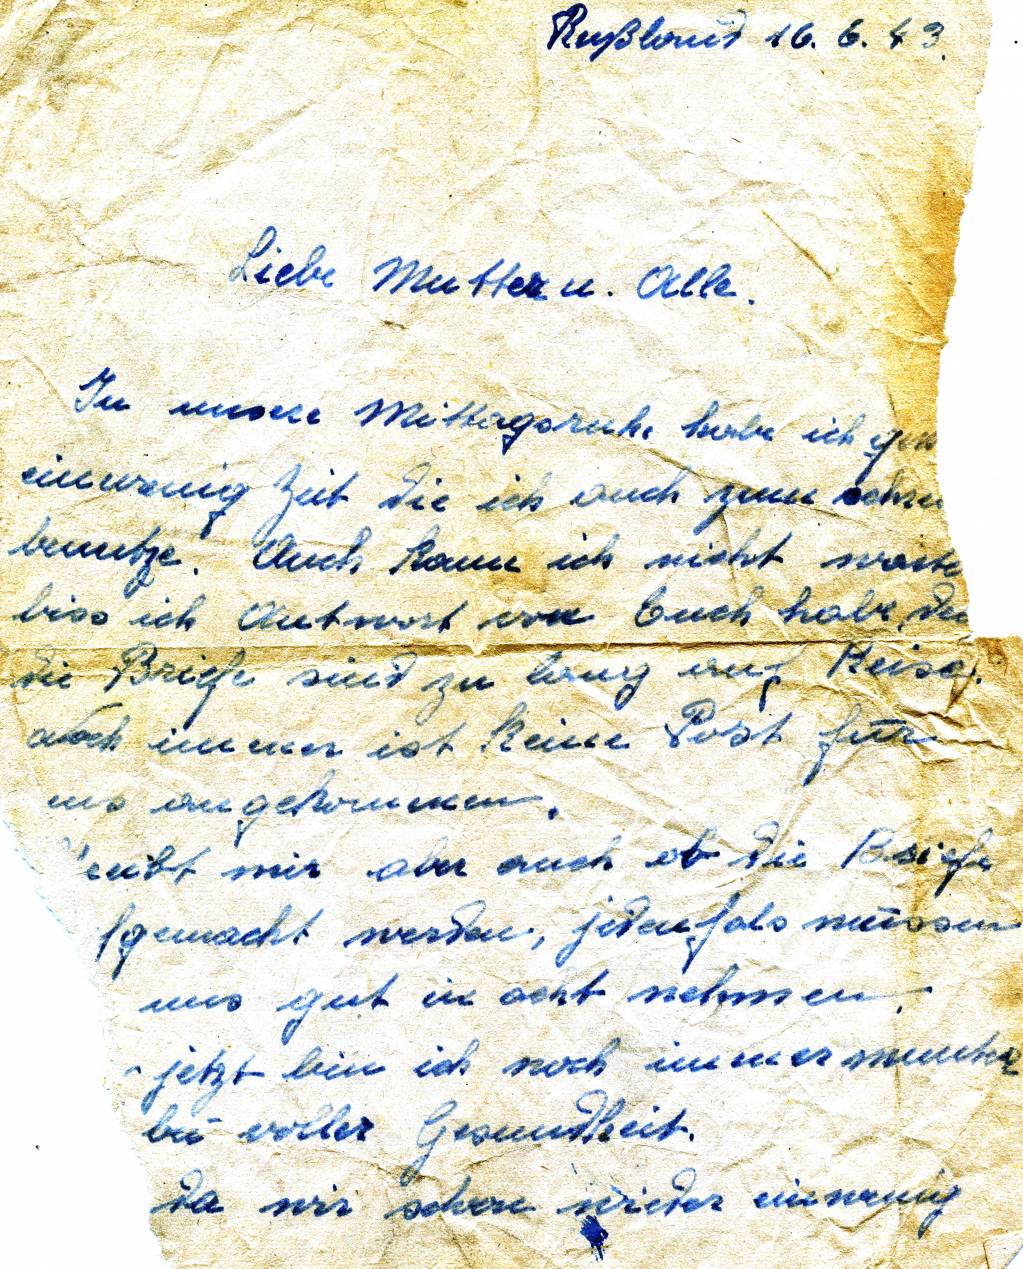 Rußland 16. 6. 43.
Liebe Mutter u. Alle.
In unsere Mittagsruhe habe ich
einwenig Zeit die ich auch zum
benutze. Auch kann ich nicht
biss ich Antwort von Euch habe,
die Briefe sind zu lang auf Reise.
noch immer ist keine Post für
uns angekommen.
mir aber auch ob die Briefe
fgemacht werden, jedenfals müssen
uns gut in acht nehmen.
jetzt bin ich noch immer munter
bei voller Gesundheit.
da wir schon wieder einwenig